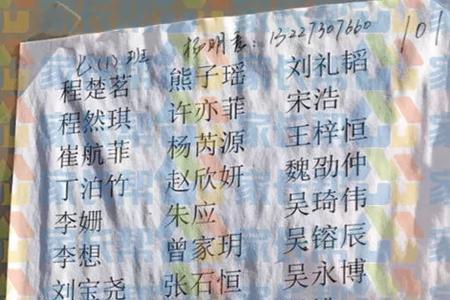 七(1)班 杨明春: 13227307660 101
程楚茗 熊子瑶 刘礼韬
程然琪 许亦菲 宋浩
崔航菲 杨芮源 王梓恒
丁泊竹 赵欣妍 魏劭仲
李姗 朱应 吴琦伟
李想 曾家玥 吴镕辰
刘宝尧 张石恒 吴永博